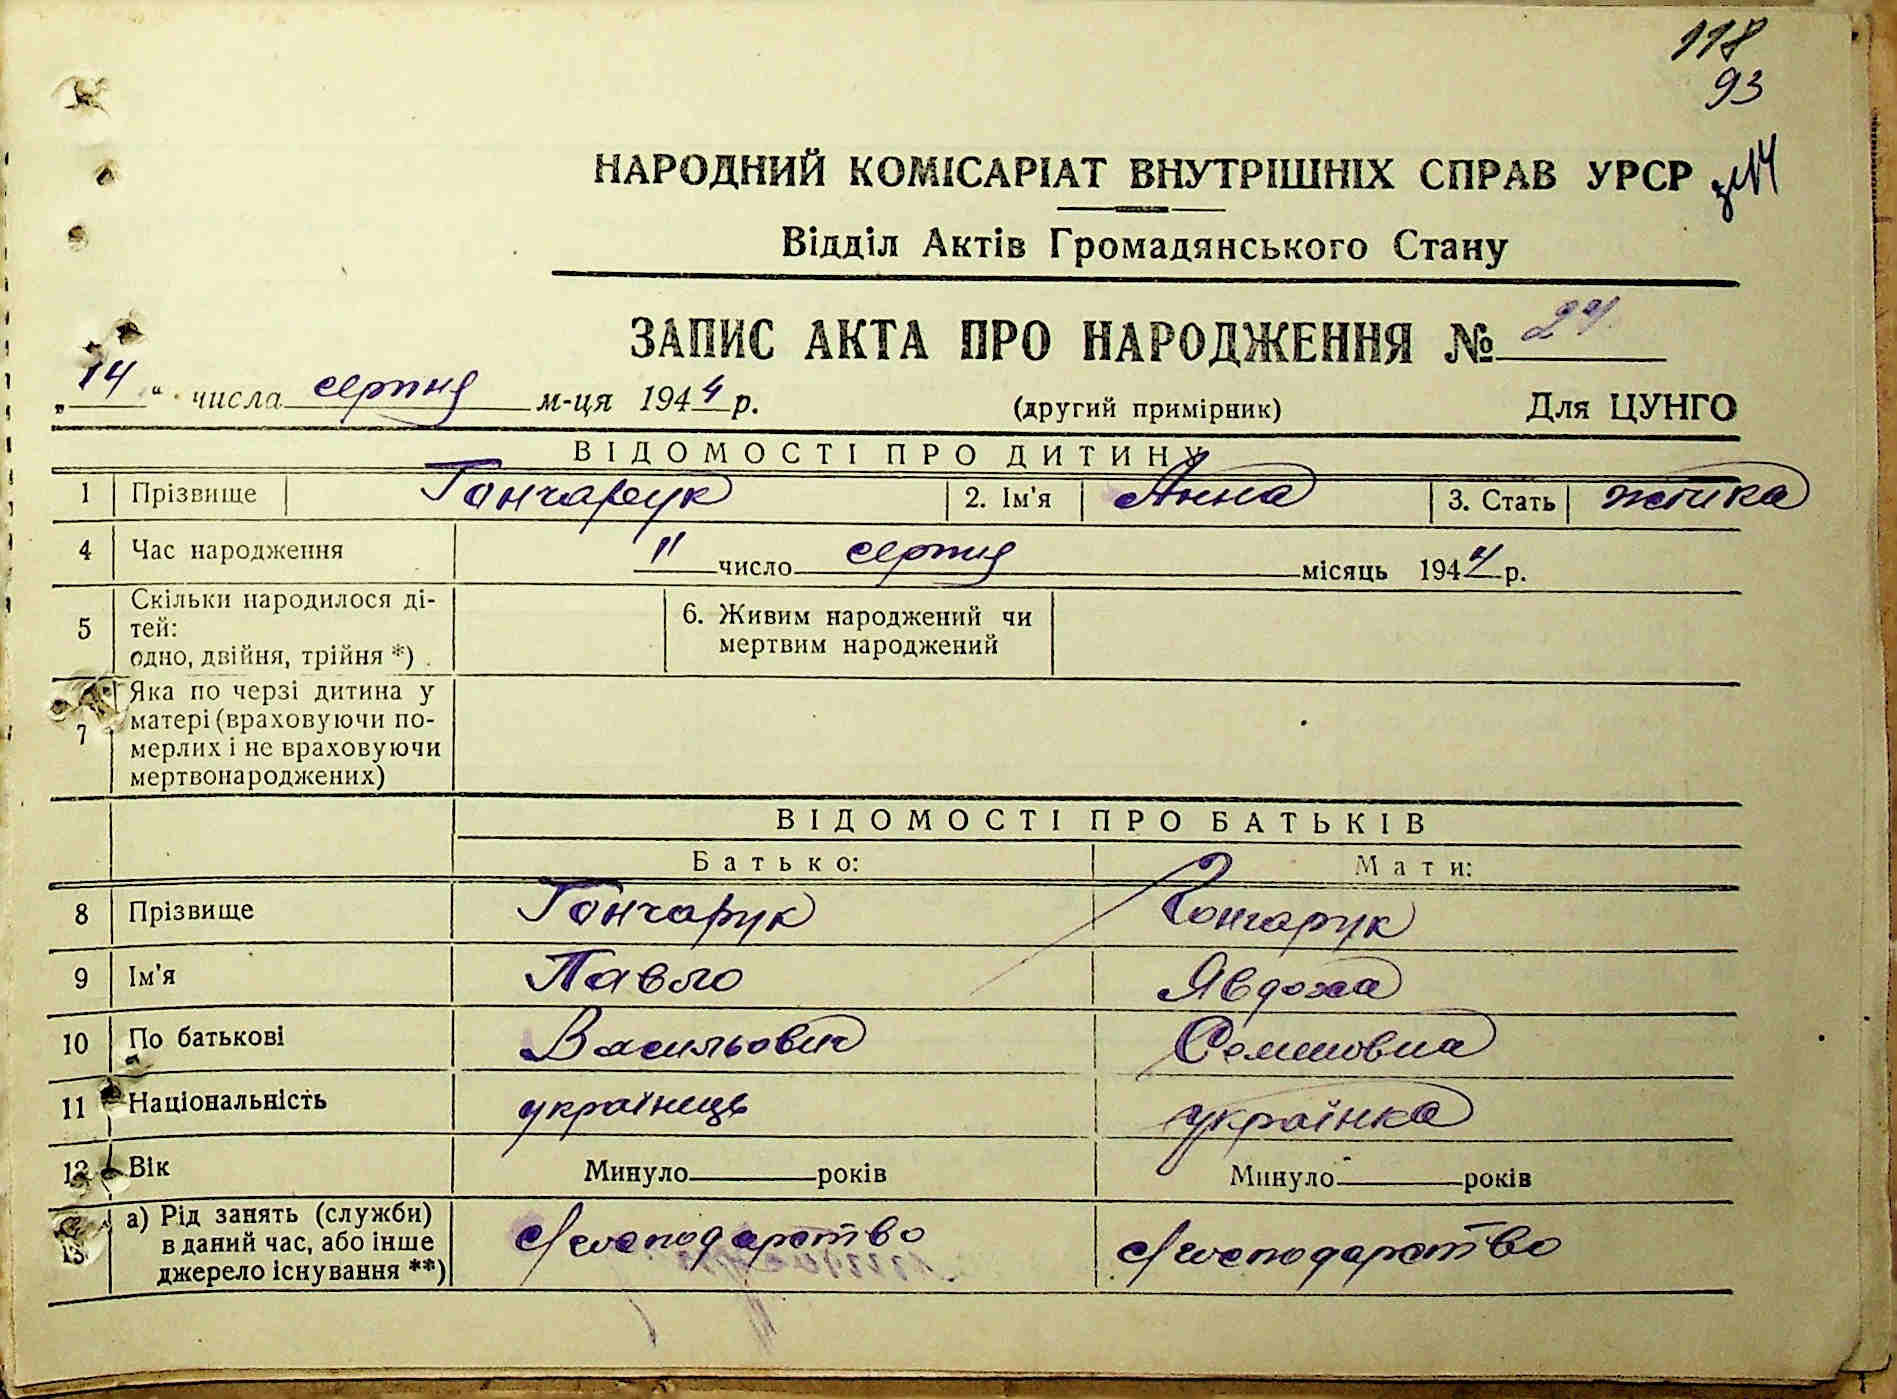 118
93
НАРОДНИЙ КОМІСАРІАТ ВНУТРІШНІХ СПРАВ УРСР
Відділ Актів Громадянського Стану
ЗАПИС АКТА ПРО НАРОДЖЕННЯ № 24
„14“ числа серпня м-ця 1944 р. (другий примірник) Для ЦУНГО
ВІДОМОСТІ ПРО ДИТИНУ
1 Прізвище Гончарук 2. Ім'я Анна 3. Стать жінка
4 Час народження 11 число серпня місяць 1944 р.
5 Скільки народилося ді-
тей:
одно, двійня, трійня *)
6. Живим народжений чи
мертвим народжений
7 Яка по черзі дитина у
матері (враховуючи по-
мерлих і не враховуючи
мертвонароджених)
ВІДОМОСТІ ПРО БАТЬКІВ
Батько: Мати:
8 Прізвище Гончарук Гончарук
9 Ім'я Павло Явдоха
10 По батькові Васильович Семеновна
11 Національність українець українка
12 Вік Минуло років Минуло років
13 а) Рід занять (служби)
в даний час, або інше
джерело існування **)
с/господарство с/господарство